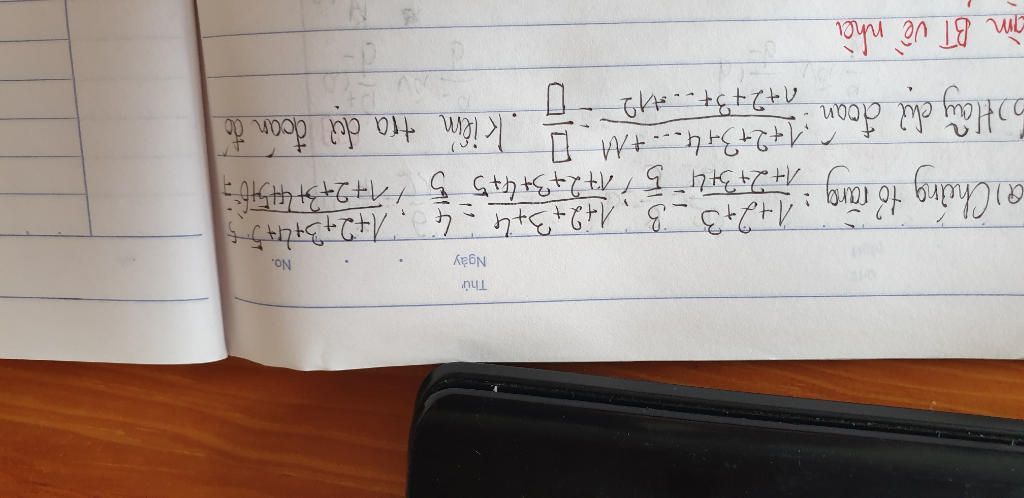 Thứ
Ngày
No.
a) Chứng tỏ rằng: 1+2+3/1+2+3+4 = 3/5; 1+2+3+4/1+2+3+4+5 = 4/5; 1+2+3+4+5/1+2+3+4+5+6 = 5/7
b) Hãy dự đoán: 1+2+3+4...+11/1+2+3+...+12 = □/□. Kiểm tra dự đoán đó
BT về nhà